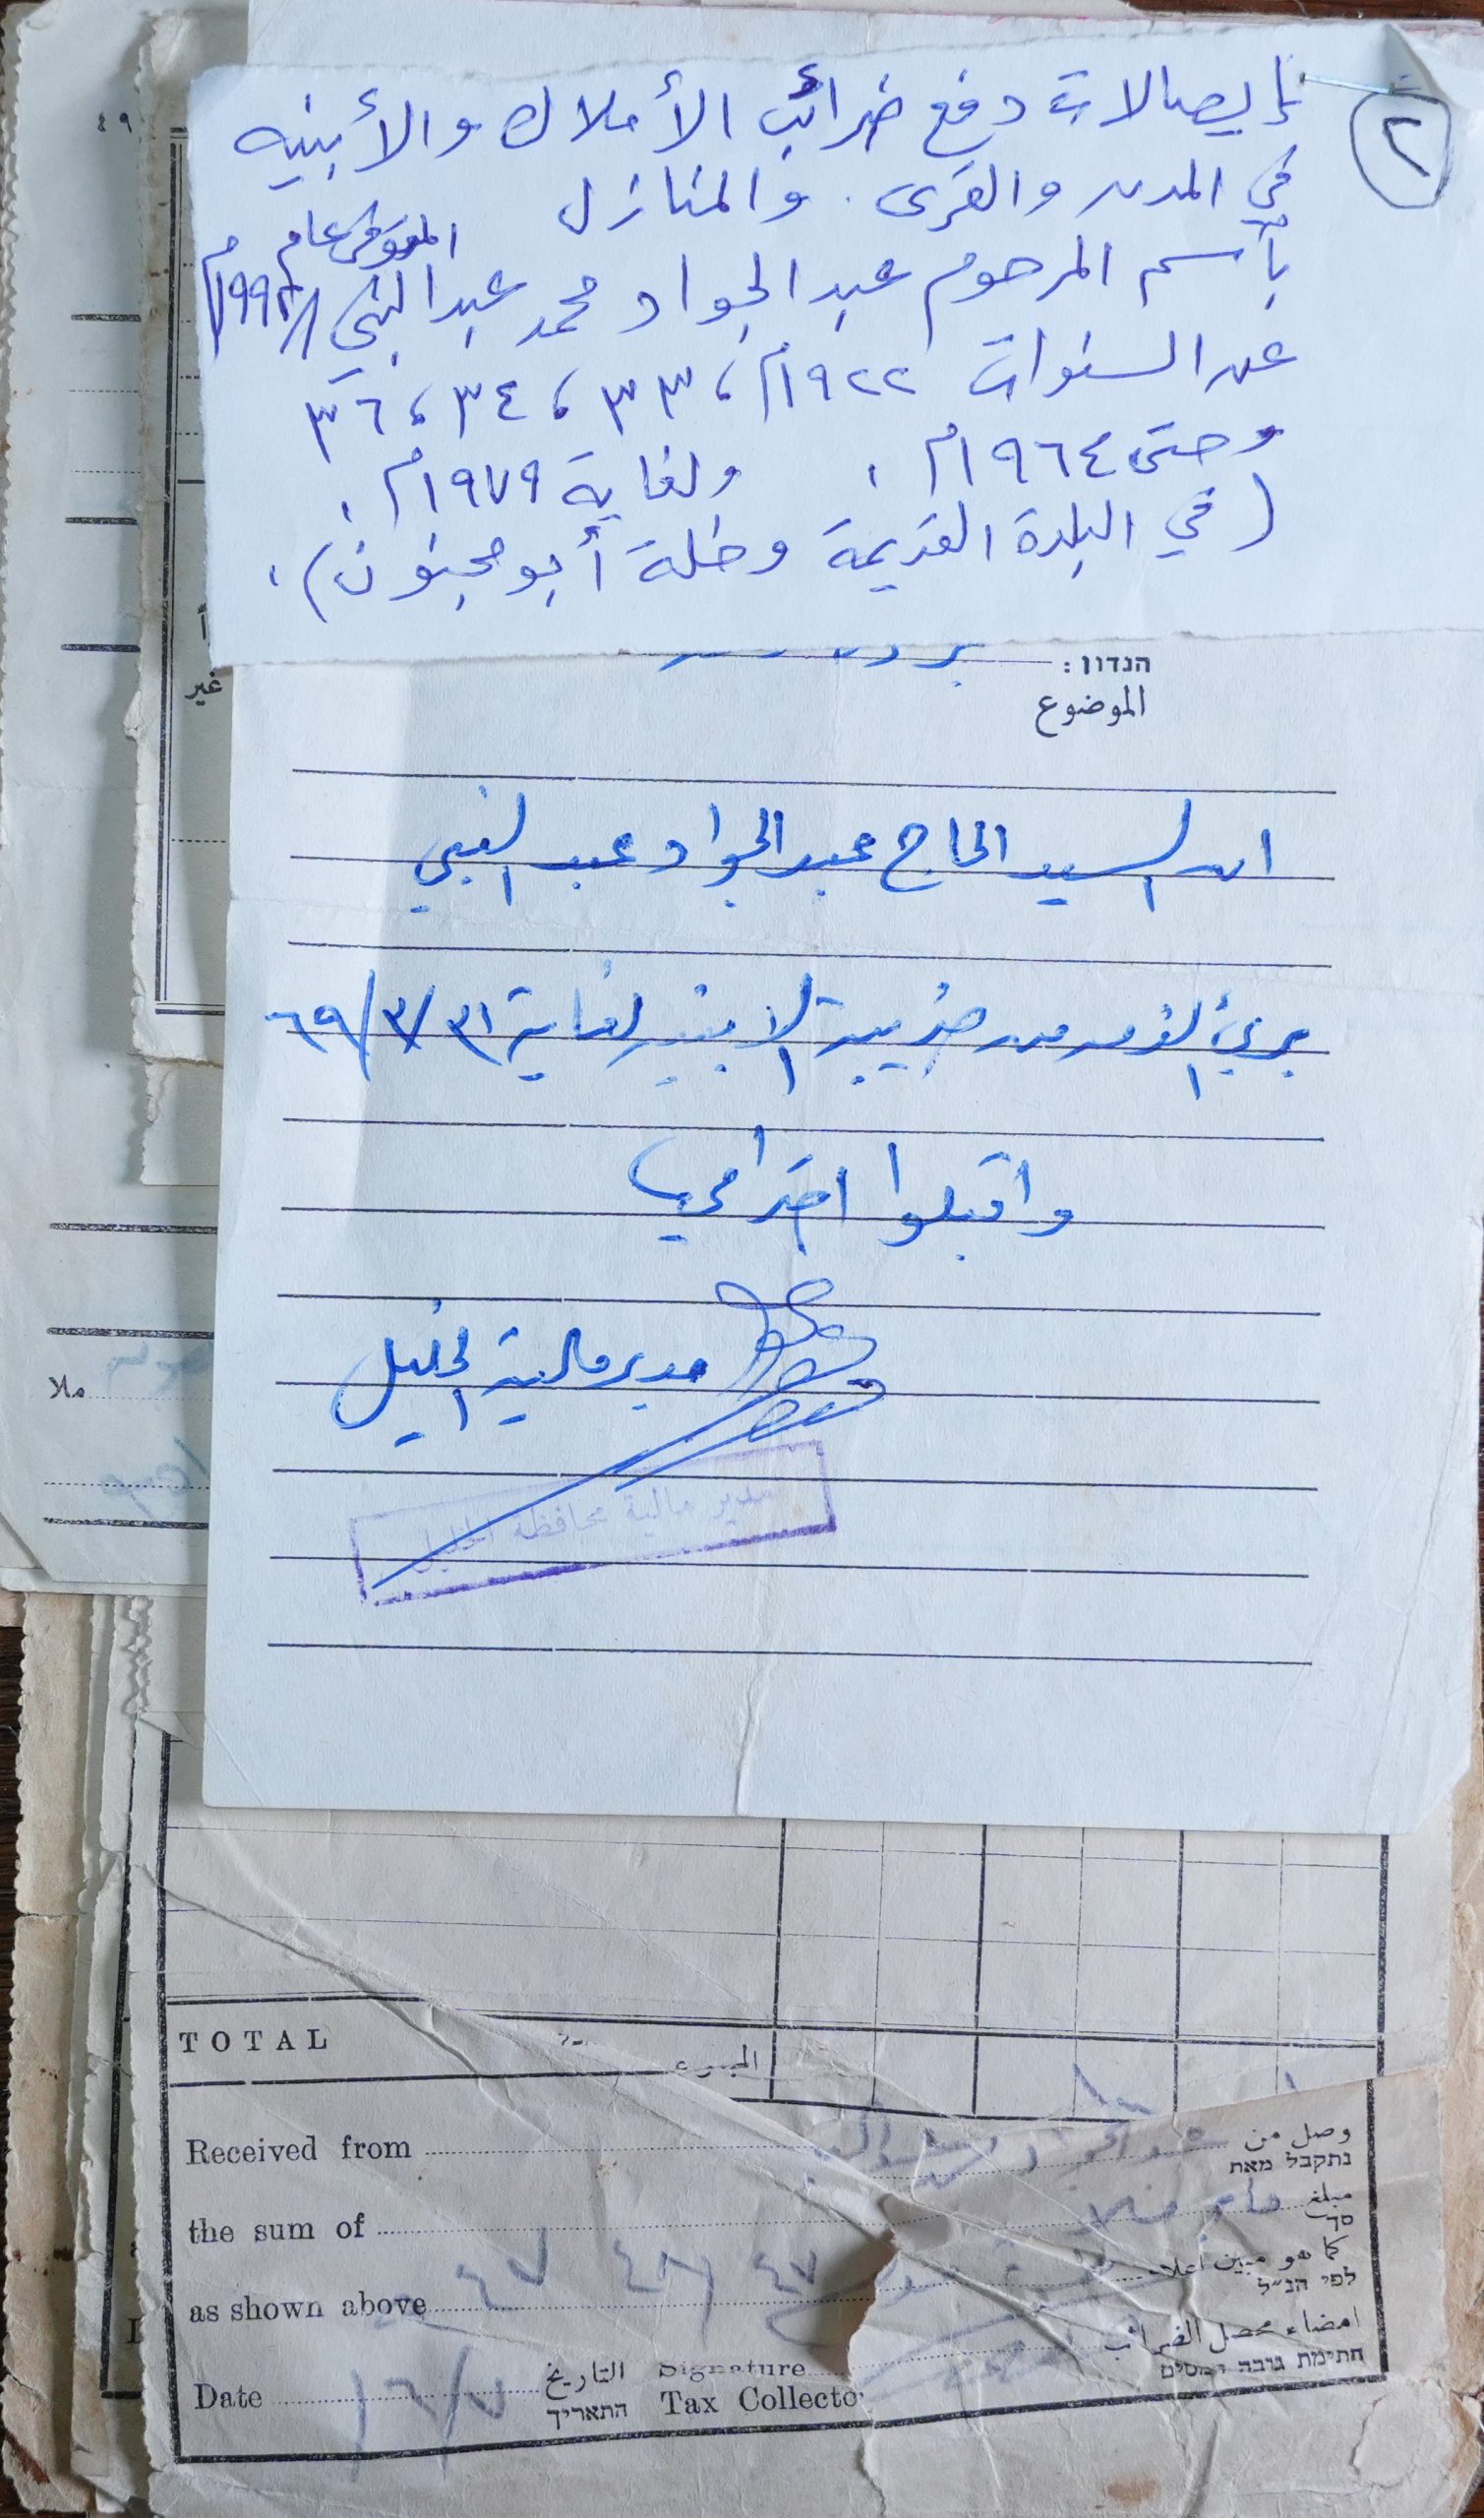 ٢
إيصالات دفع ضرائب الأملاك والأبنيه
في المدن والقرى. والمنازل
المتوفى عام
بأسم المرحوم عبد الجواد محمد عبد النبي ١٩٩٢م
عن السنوات ١٩٢٢م، ٣٣، ٣٤، ٣٦
وحتى ١٩٦٤م. ولغاية ١٩٧٩م.
(في البلدة القديمة وخلة أبو مجنونة).
٤٩
أ
غير
הנדון:
الموضوع
ان السيد الحاج عبد الجواد عبد النبي
بريء الذمه من ضريبة الابنيه لغاية ٣١/٣/٦٩
واقبلوا احترامي
مدير مالية الخليل
مدير مالية محافظة الخليل
ملا
TOTAL المجموع
Received from وصل من
נתקבל מאת
the sum of مبلغ
סך
as shown above ٤٧ ٤٦/٤٧ كما هو مبين اعلاه
לפי הנ״ל
امضاء محصل الضرائب
חתימת גובה המסים
Date التاريخ Signature
התאריך Tax Collecto